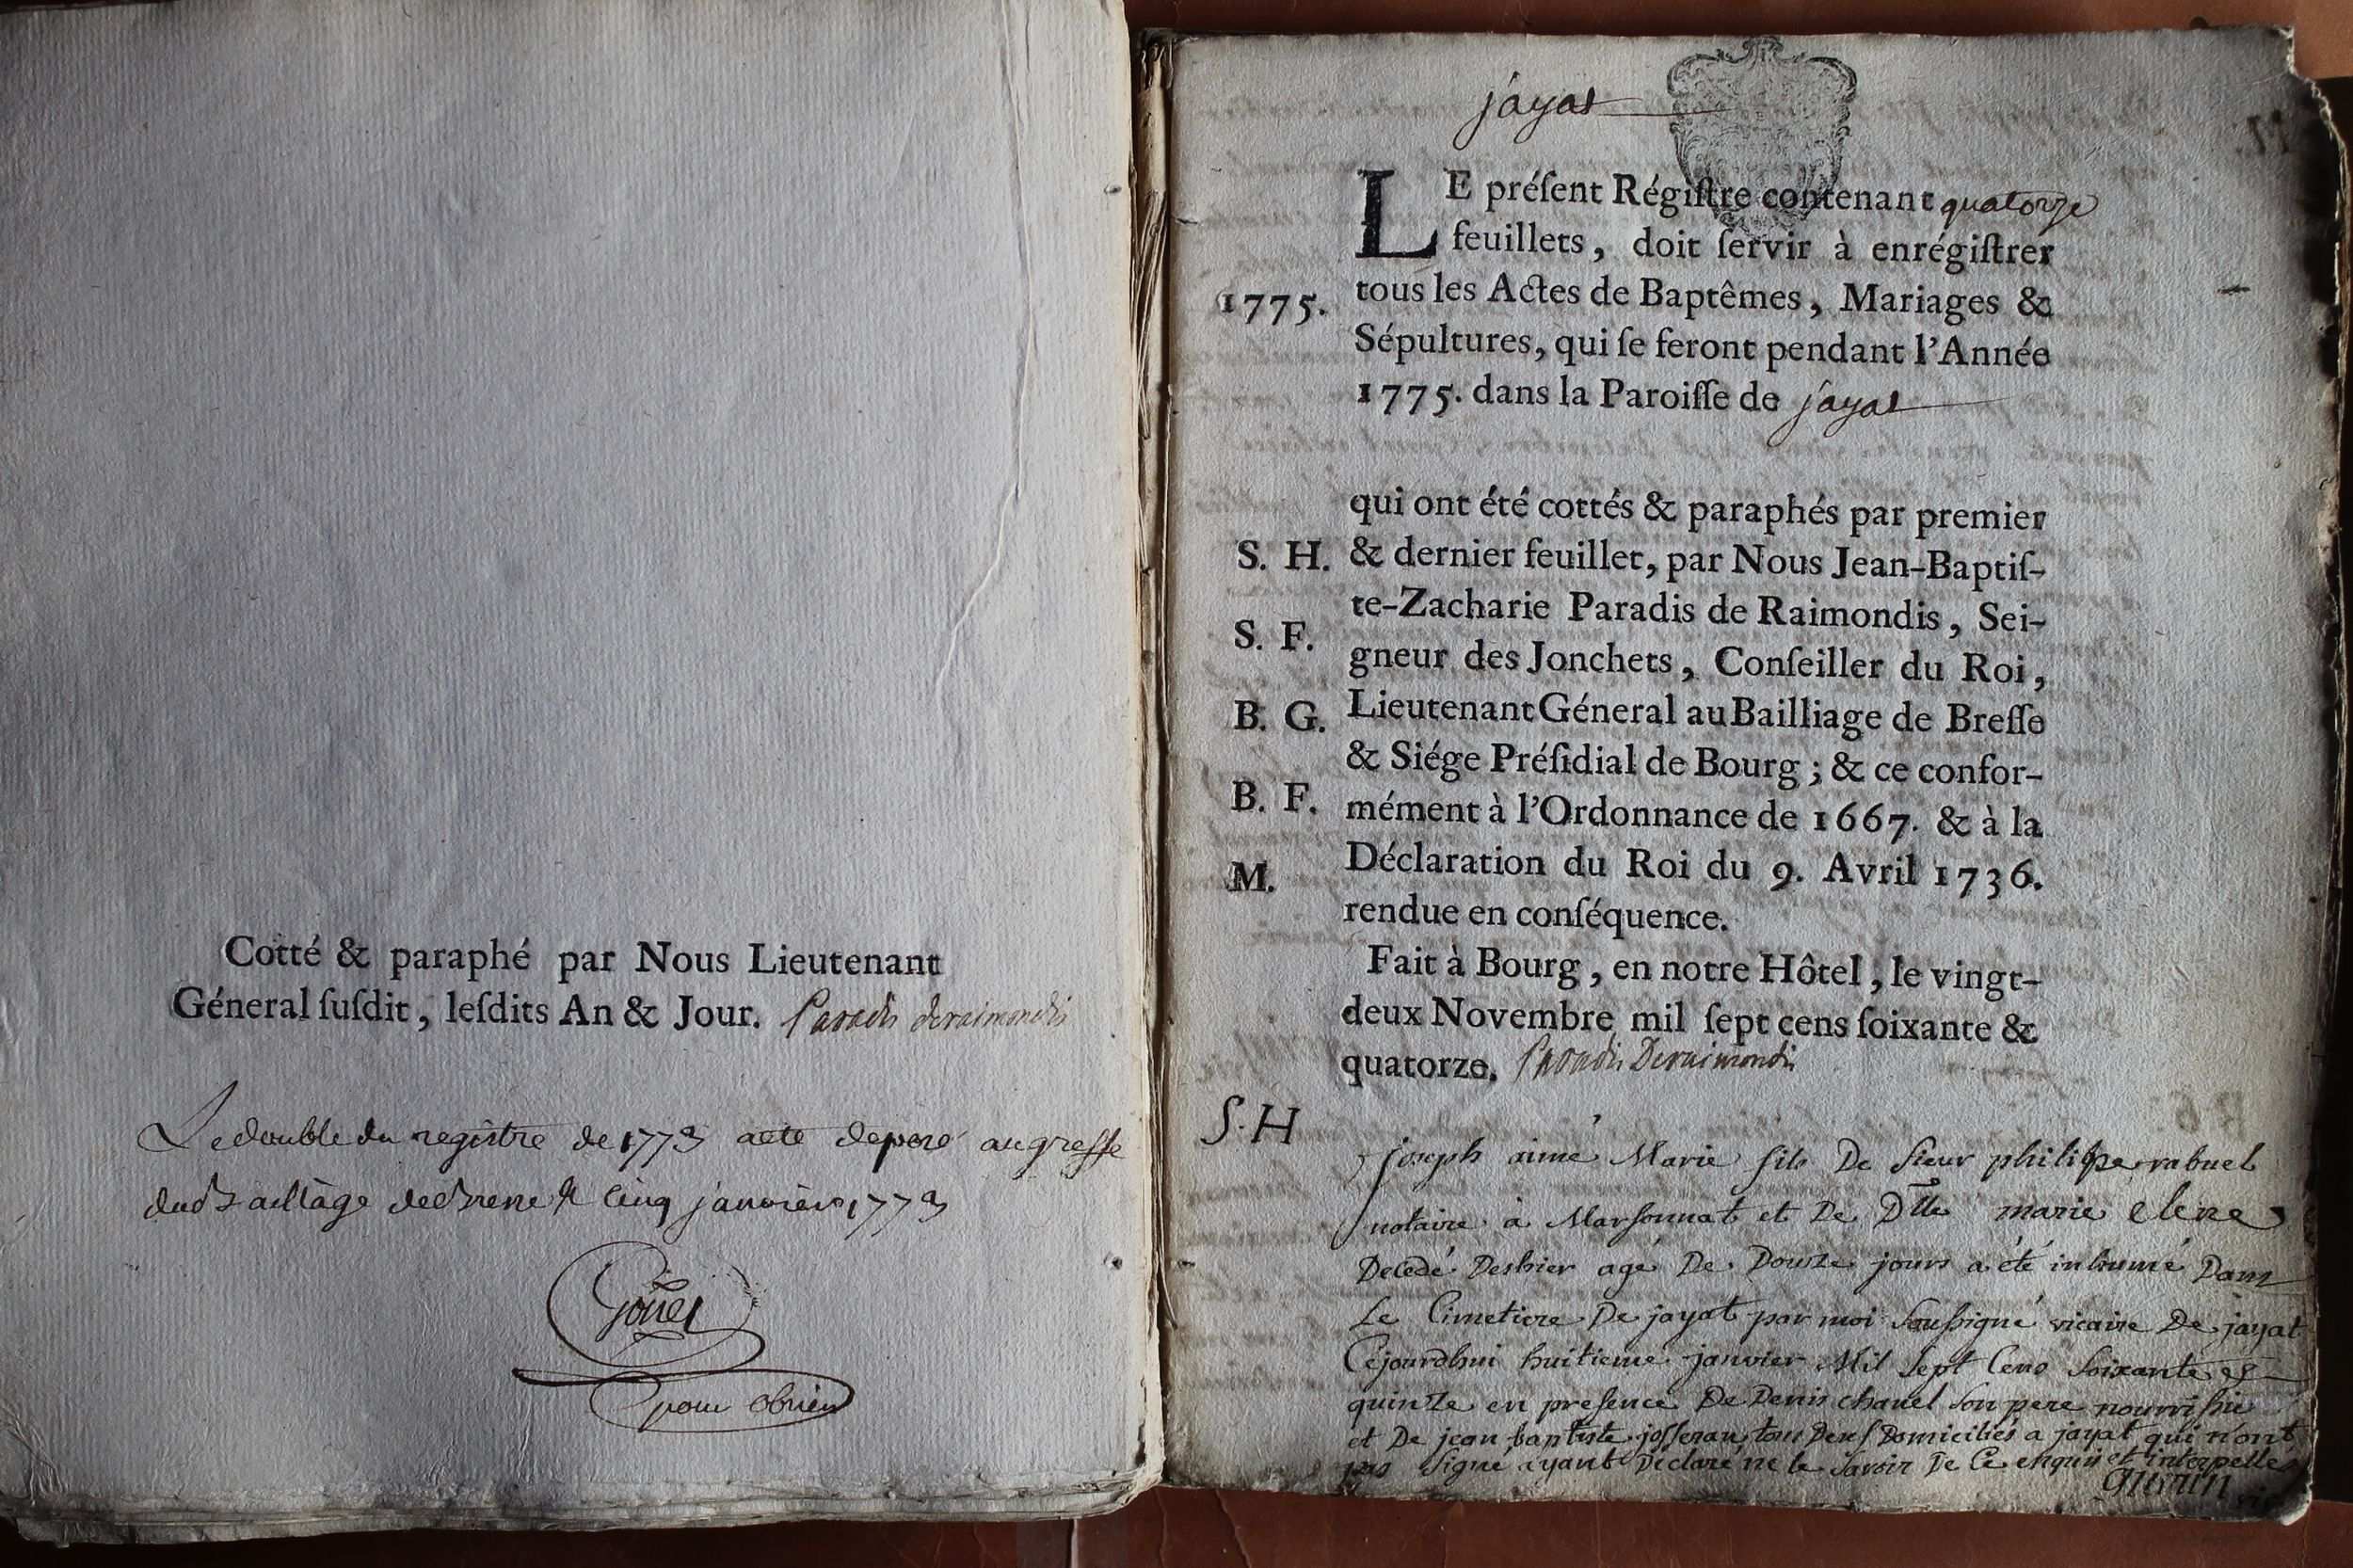 Cotté & paraphé par Nous Lieutenant
Géneral ſuſdit, leſdits An & Jour. Paradis deraimondis
Le double du registre de 1773 a eté deposé au greffe
du Bailliage de Bresse le cinq janvier 1773
pour obrien
jayat
LE préſent Régiſtre contenant quatorze
feuillets, doit ſervir à enrégiſtrer
1775. tous les Actes de Baptêmes, Mariages &
Sépultures, qui ſe feront pendant l'Année
1775. dans la Paroiſſe de jayat
qui ont été cottés & paraphés par premier
S. H. & dernier feuillet, par Nous Jean-Baptiſ-
te-Zacharie Paradis de Raimondis, Sei-
S. F. gneur des Jonchets, Conſeiller du Roi,
B. G. Lieutenant Géneral au Bailliage de Breſſe
& Siége Préſidial de Bourg ; & ce confor-
B. F. mément à l'Ordonnance de 1667. & à la
M. Déclaration du Roi du 9. Avril 1736.
rendue en conſéquence.
Fait à Bourg, en notre Hôtel, le vingt-
deux Novembre mil ſept cens ſoixante &
quatorze. Paradis Deraimondis
S. H
joseph aimé Marie fils De sieur philippe rabuel
notaire a Marsonnat et De Dlle marie elene
Decedé Deshier agé De Douze jours a été inhumé Dans
Le Cimetiere De jayat par moi soussigné vicaire De jayat
Cejourdhui huitieme janvier Mil sept Cens soixante et
quinze en presence De Denis chanel son pere nourrissie
et De jean baptiste josseran tous Deus Domiciliés a jayat qui n'ont
pas signé ayant Déclaré ne le savoir De Ce enquis et interpellés
guerin vic